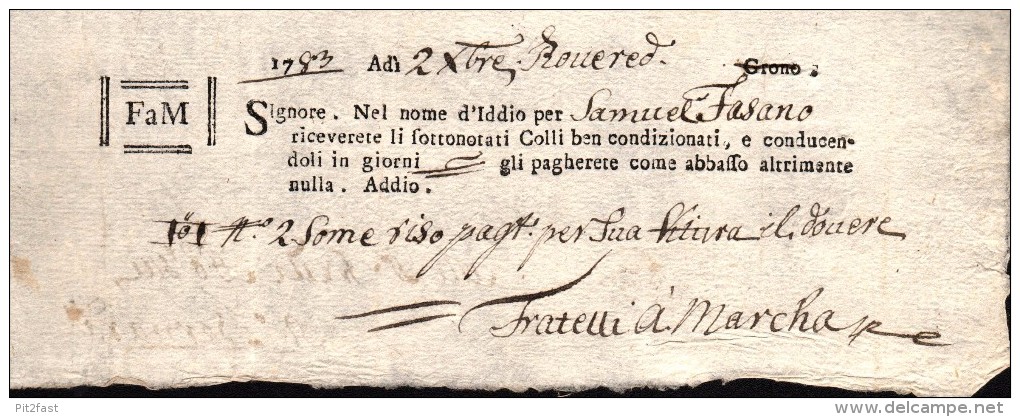 1783 Adì 2 Xbre. Rovered. Grono.
FaM
SIgnore. Nel nome d'Iddio per Samuel Fasano
riceverete li ſottonotati Colli ben condizionati, e conducen-
doli in giorni gli pagherete come abbaſſo altrimente
nulla. Addio.
2 Some riso pagt. per sua vitura il. dovere
Fratelli à. Marcha
Pit2fast
www.delcampe.net